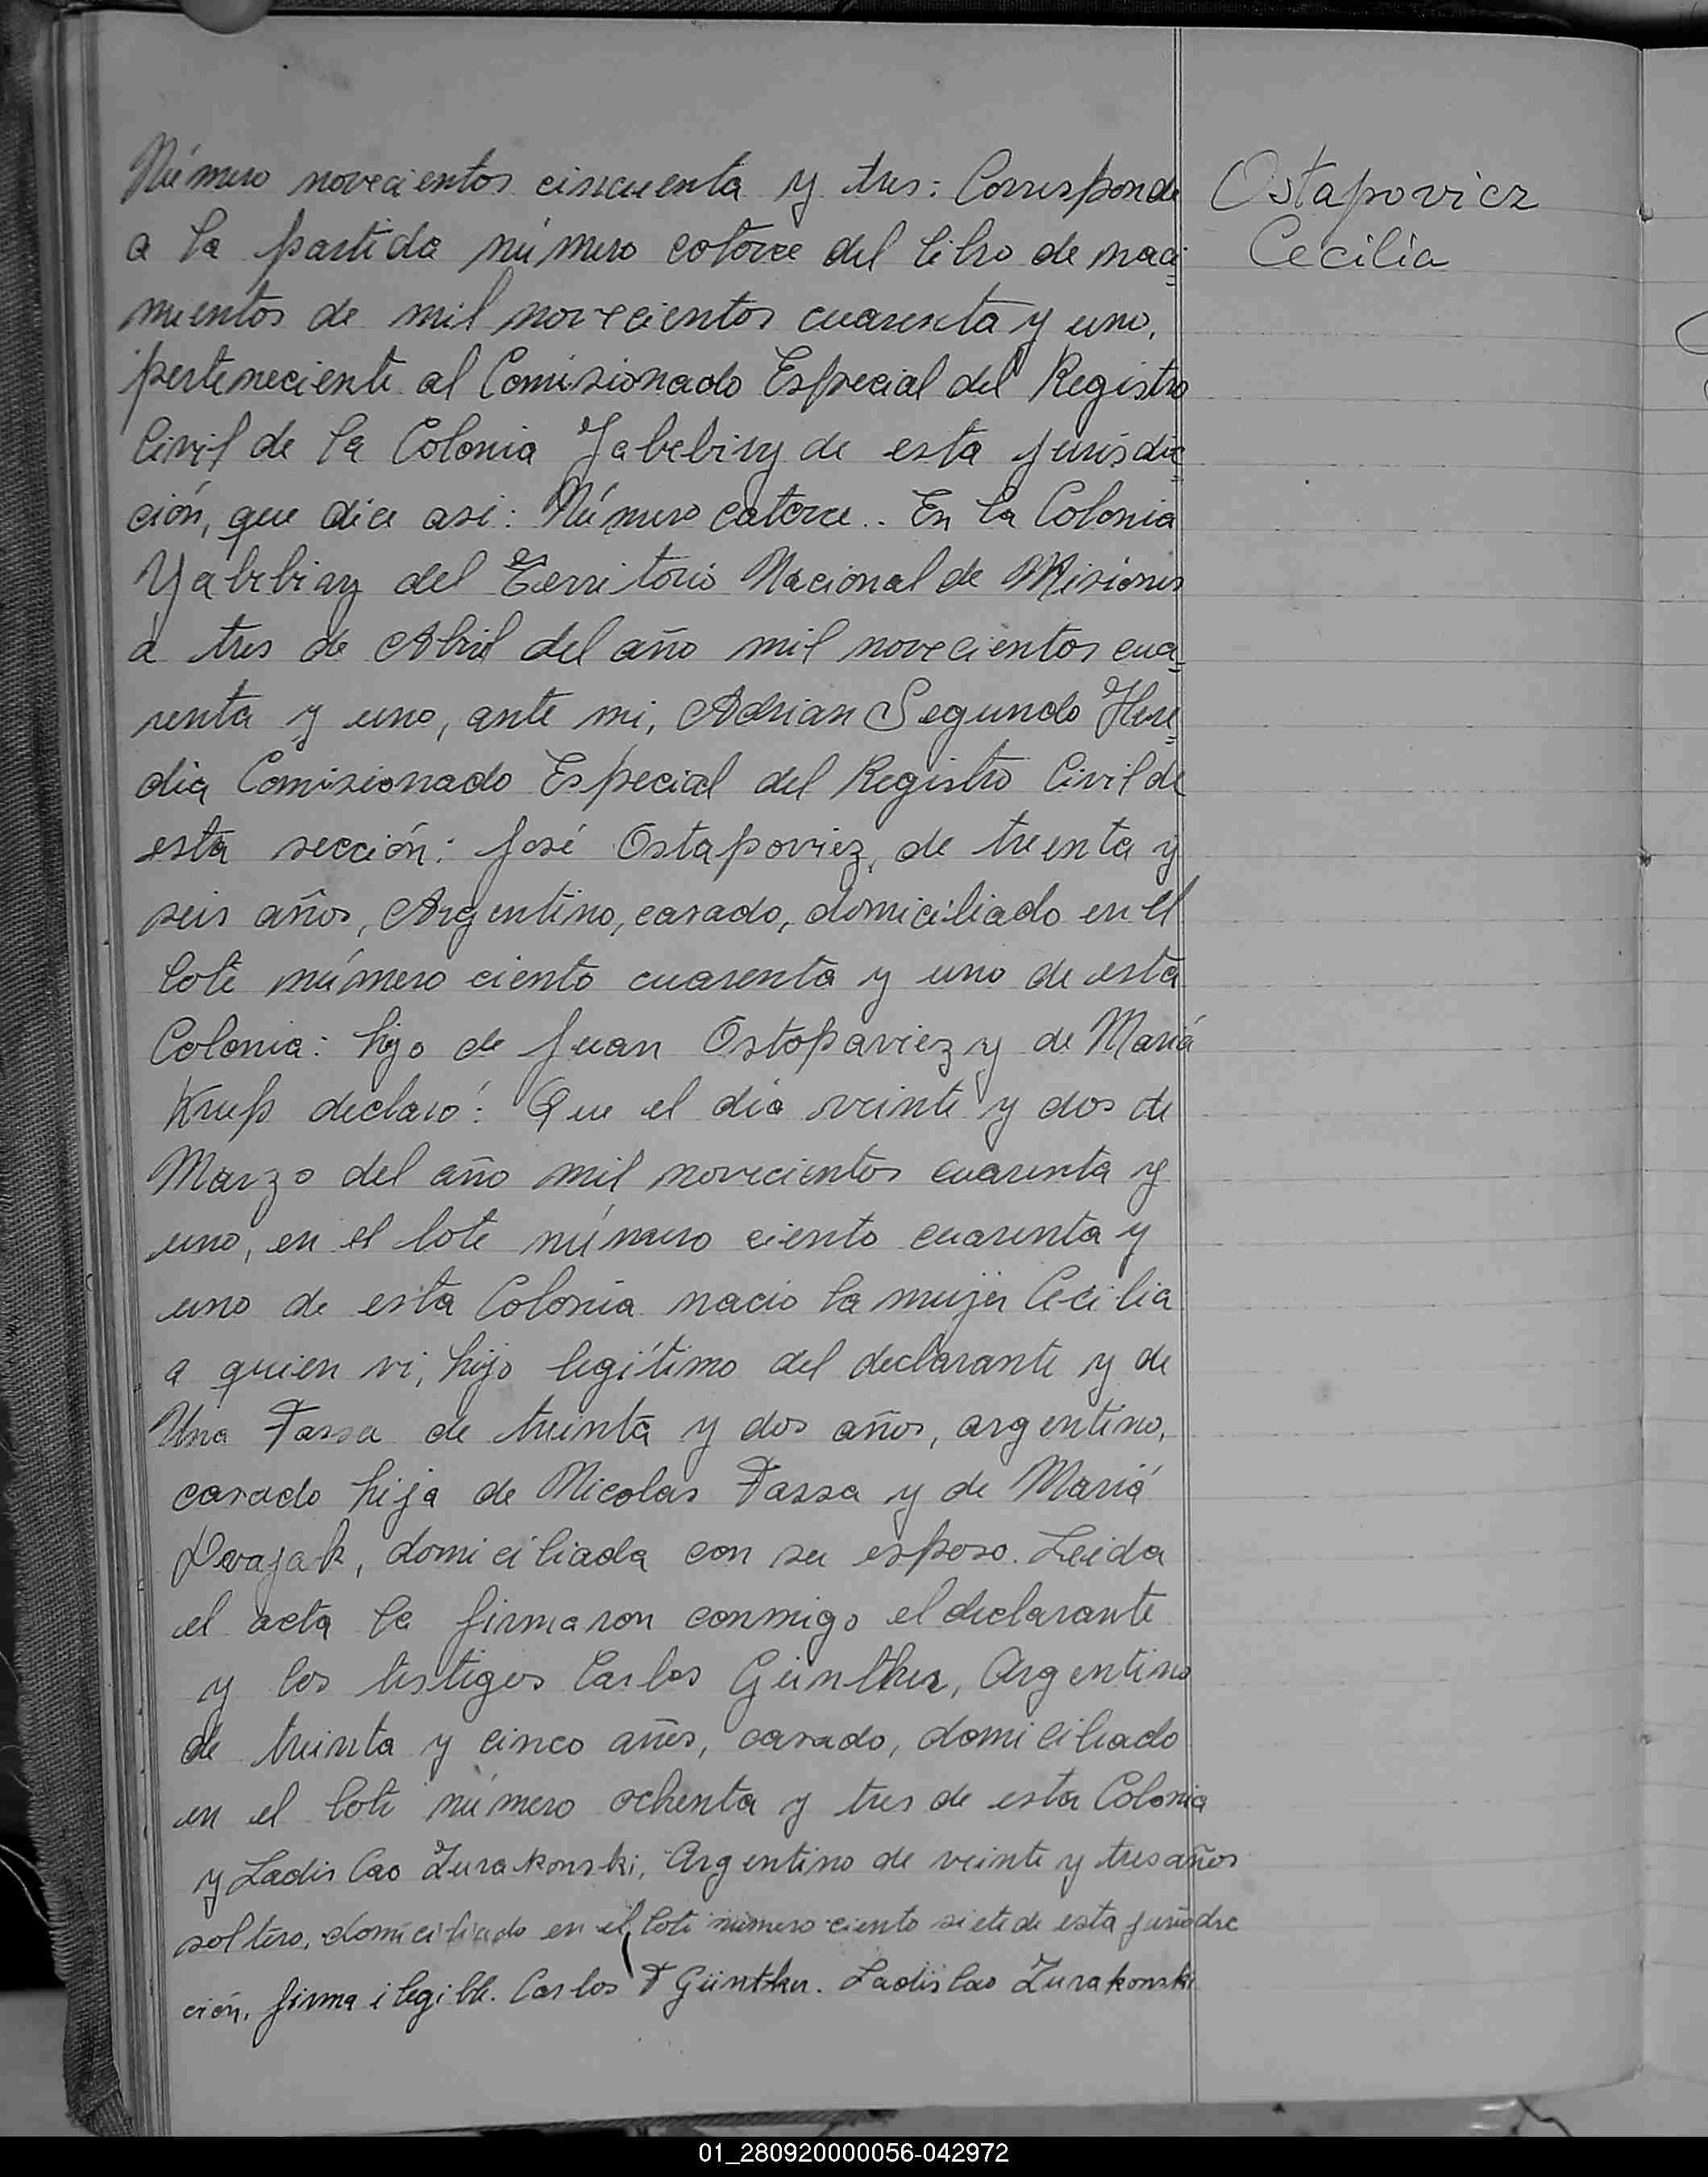 Número novecientos cincuenta y tres: Corresponde
a la partida número catorce del libro de naci
mientos de mil novecientos cuarenta y uno,
perteneciente al Comisionado Especial del Registro
Civil de la Colonia Yabebiry de esta jurisdic
ción, que dice asi: Número catorce.. En la Colonia
Yabebiry del Territorio Nacional de Misiones
a tres de Abril del año mil novecientos cua
renta y uno, ante mi, Adrian Segundo Here
dia Comisionado Especial del Registro Civil de
esta sección: José Ostapoviez, de treenta y
seis años, Argentino, casado, domiciliado en el
lote número ciento cuarenta y uno de esta
Colonia: hijo de Juan Ostopaviez y de Maria
Krup declaró: Que el dia veinte y dos de
Marzo del año mil novecientos cuarenta y
uno, en el lote número ciento cuarenta y
uno de esta Colonia nacio la mujer Cecilia
a quien vi, hijo legítimo del declarante y de
Una Fassa de treinta y dos años, argentino,
casado hija de Nicolas Fassa y de Mariá
domiciliada con su esposo. Leida
el acta la firmaron conmigo el declarante
y los testigos Carlos Günther, Argentino
de treinta y cinco años, casado, domiciliado
en el lote número ochenta y tres de esta Colonia
y Ladislao Zurakonski, Argentino de veinte y tres años
soltero, domiciliado en el lote número ciento siete de esta jurisdic
ción, firma ilegible. Carlos F Günther. Ladislao Zurakonski
Ostapovicz
Cecilia
01_280920000056-042972